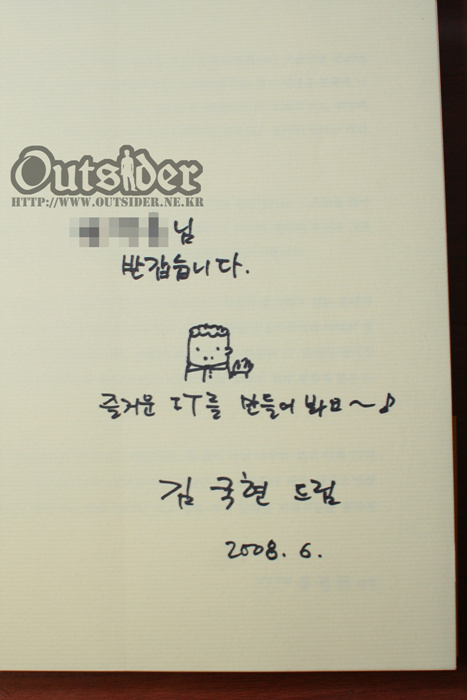 Outsider
HTTP://WWW.OUTSIDER.NE.KR
님
반갑습니다.
즐거운 IT를 만들어 봐요~♪
김국현 드림
2008. 6.